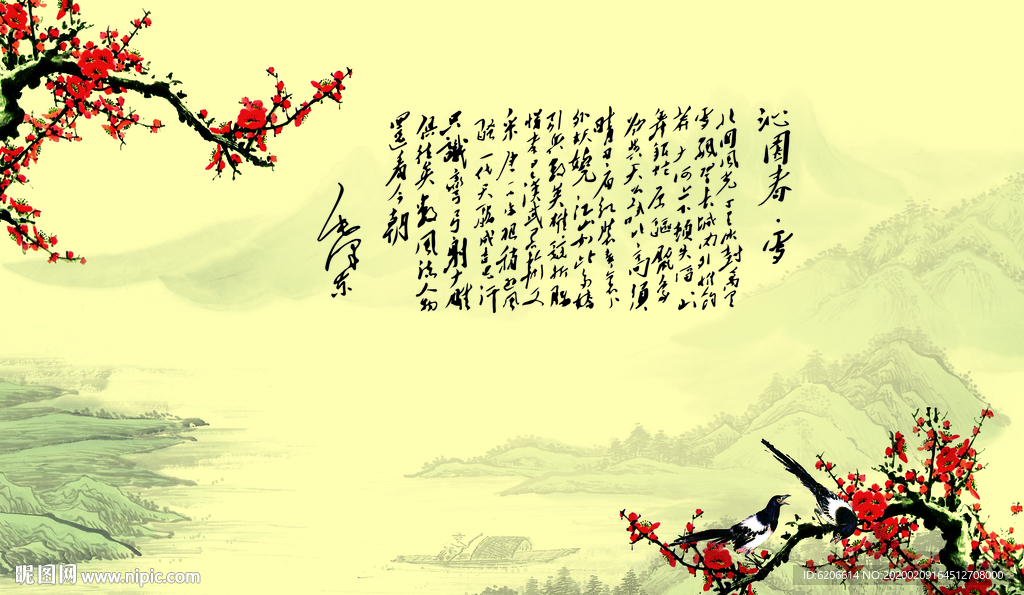 沁園春·雪
北国風光千里冰封萬里
雪飄望長城内外惟餘
莽莽大河上下頓失滔滔山
舞銀蛇原驅臘象
欲與天公試比高須
晴日看紅裝素裹
分外妖嬈江山如此多嬌
引無數英雄競折腰
惜秦皇漢武略輸文
采唐宗宋祖稍遜風
騷一代天驕成吉思汗
只識彎弓射大雕
俱往矣數風流人物
還看今朝
毛澤东
昵图网 www.nipic.com
ID:6206614 NO:20200209164512708000